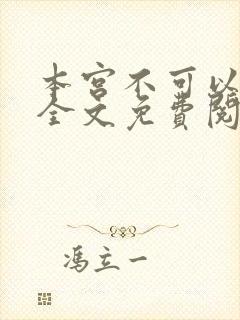 本宫不可以
全文免费阅
冯立一